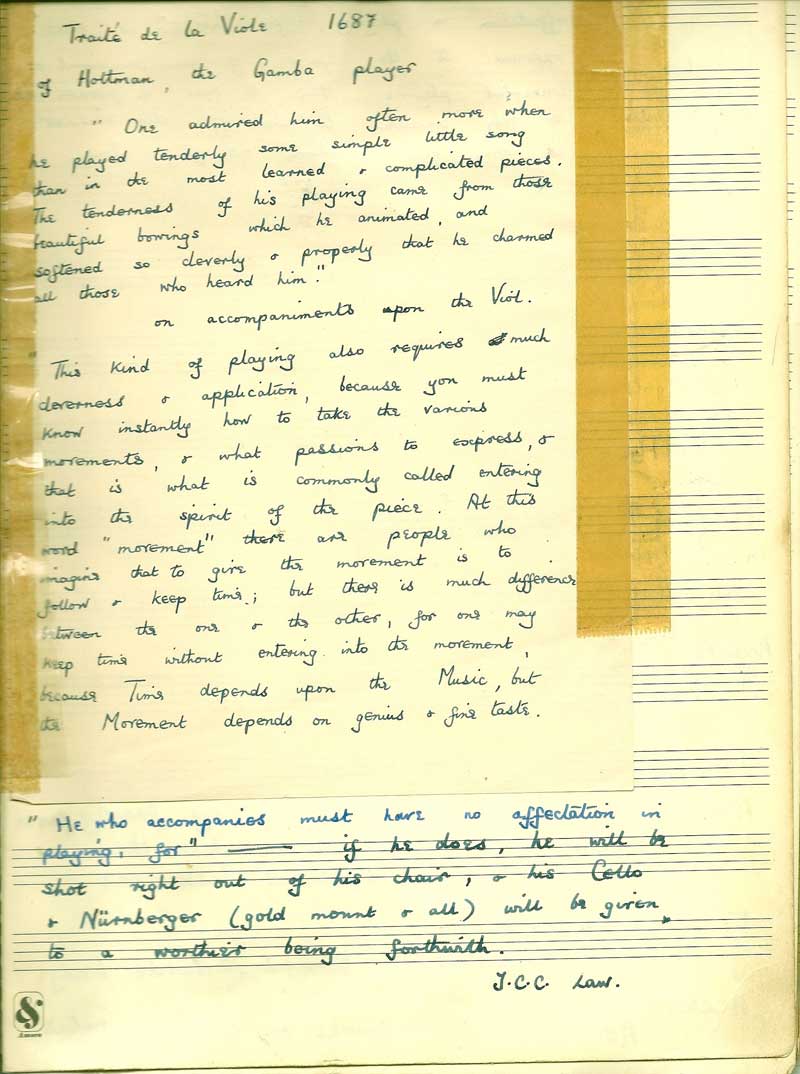 Traité de la Viole 1687
of Hottman, the Gamba player
" One admired him often more when
he played tenderly some simple little song
than in the most learned & complicated pieces.
The tenderness of his playing came from those
beautiful bowings which he animated, and
softened so cleverly & properly that he charmed
all those who heard him."
on accompaniments upon the Viol.
"This kind of playing also requires much
cleverness & application, because you must
know instantly how to take the various
movements, & what passions to express, &
that is what is commonly called entering
into the spirit of the piece. At this
word "movement" there are people who
imagine that to give the movement is to
follow & keep time; but there is much difference
between the one & the other, for one may
keep time without entering into the movement,
because Time depends upon the Music, but
the Movement depends on genius & fine taste.
" He who accompanies must have no affectation in
playing, for" —— if he does, he will be
shot right out of his chair, & his Cello
& Nürnberger (gold mount & all) will be given
to a worthier being forthwith.
J.C.C. Law.